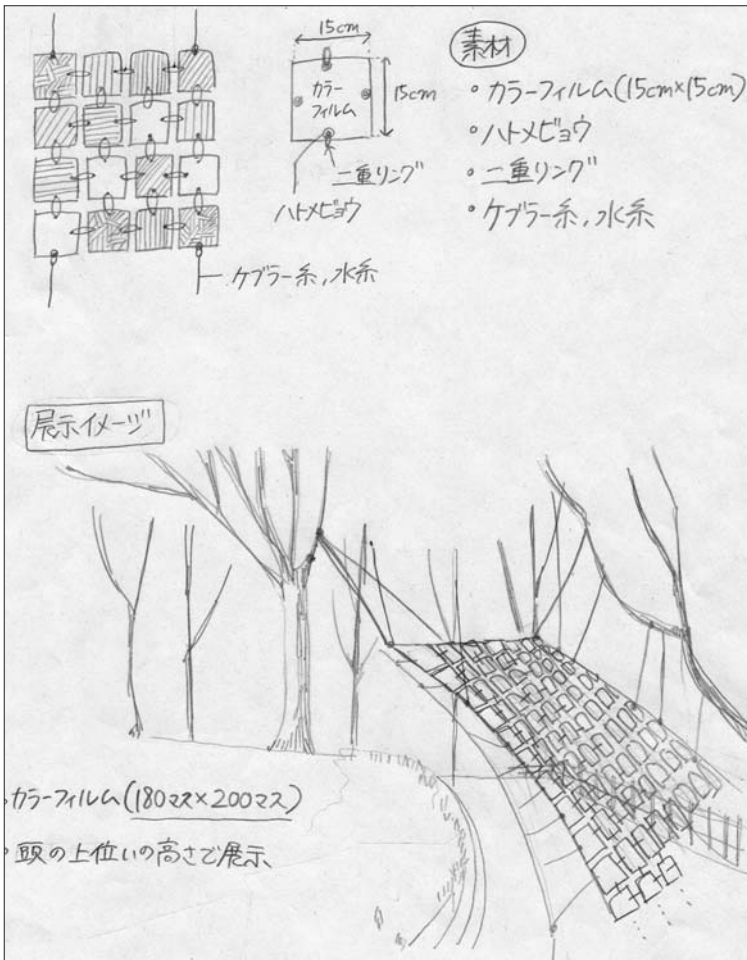 15cm
15cm
カラー
フィルム
二重リング
ハトメビョウ
ケブラー糸,水糸
素材
・カラーフィルム(15cm×15cm)
・ハトメビョウ
・二重リング
・ケブラー糸,水糸
展示イメージ
・カラーフィルム(180マス×200マス)
・頭の上位いの高さで展示